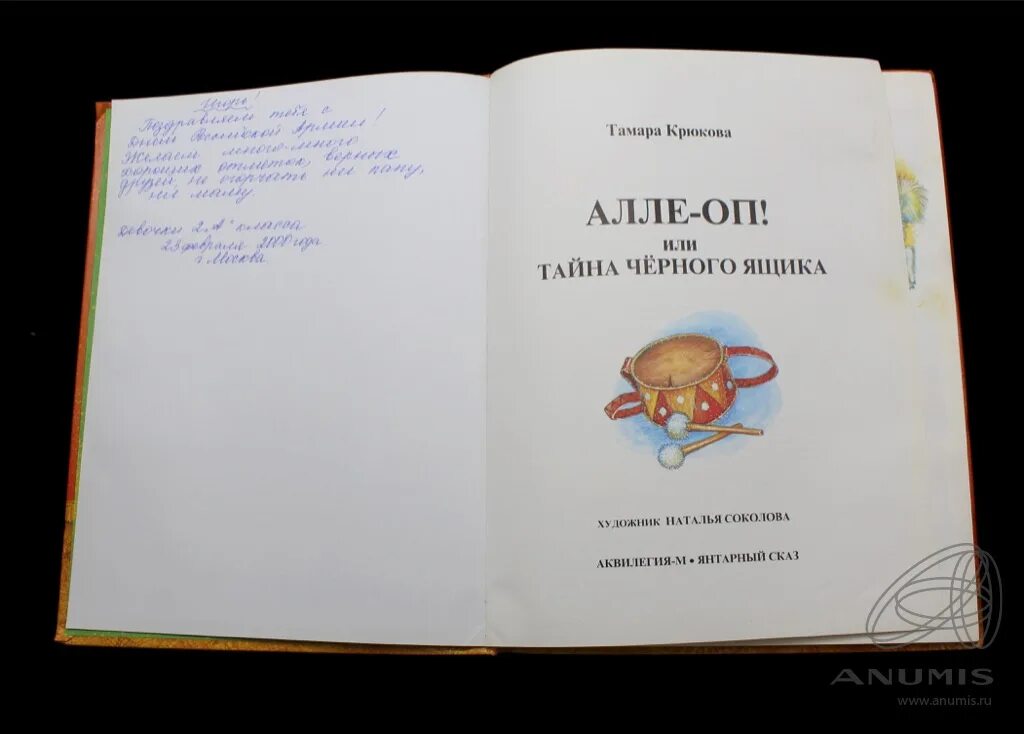 Игорь!
Поздравляем тебя с
днём Российской Армии!
Желаем много-много
хороших отметок, верных
друзей, не огорчать ни папу,
ни маму.
Девочки 2 "А" класса
23 февраля 2000 года
г. Москва.
Тамара Крюкова
АЛЛЕ-ОП!
или
ТАЙНА ЧЁРНОГО ЯЩИКА
ХУДОЖНИК НАТАЛЬЯ СОКОЛОВА
АКВИЛЕГИЯ-М • ЯНТАРНЫЙ СКАЗ
ANUMIS
www.anumis.ru